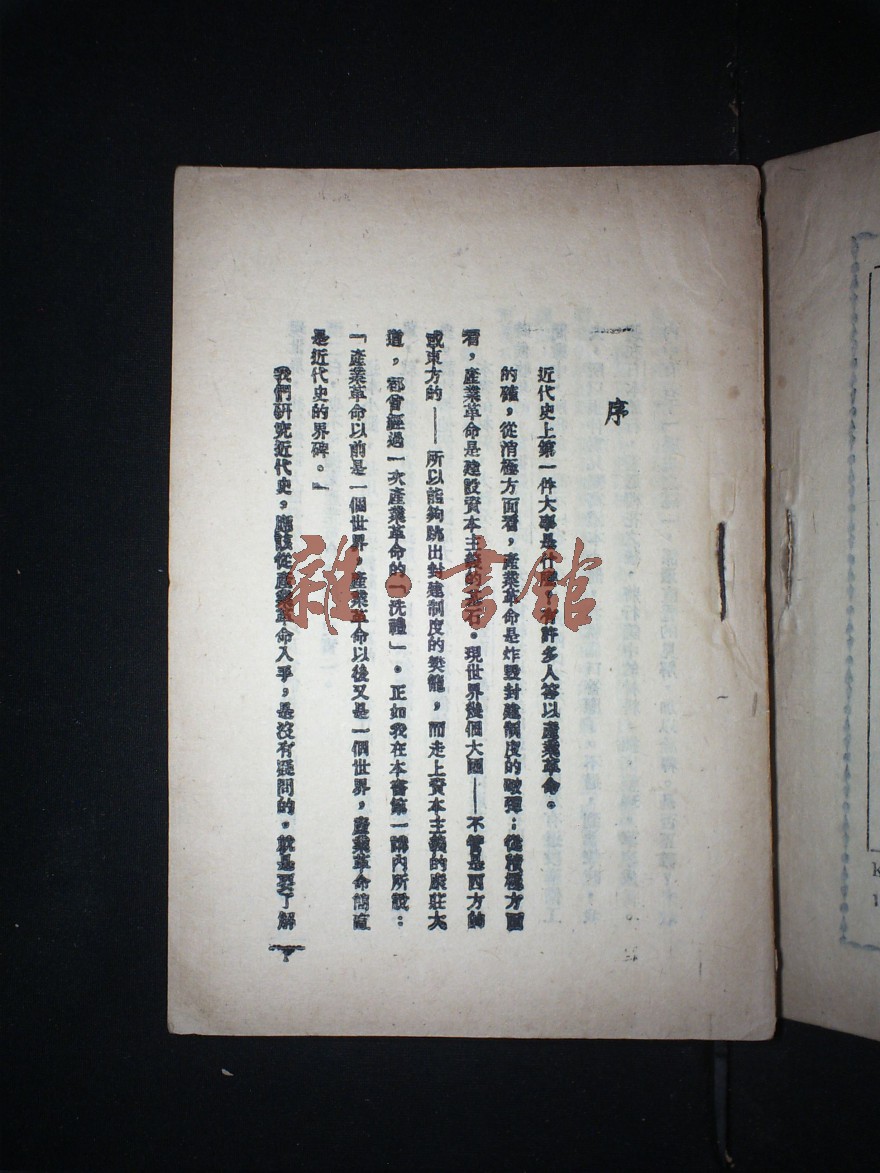 序
近代史上第一件大事是什麼？有許多人答以產業革命。
的確，從消極方面看，產業革命是炸毀封建制度的破彈；從積極方面
看，產業革命是建設資本主義的基石。現世界幾個大國——不管是西方的
或東方的——所以能夠跳出封建制度的樊籠，而走上資本主義的康莊大
道，都曾經過一次產業革命的「洗禮」。正如我在本書第一講內所說：
「產業革命以前是一個世界，產業革命以後又是一個世界，產業革命簡直
是近代史的界碑。』
我們研究近代史，應該從產業革命入手，是沒有疑問的。就是要了解
雜·書館
k
1